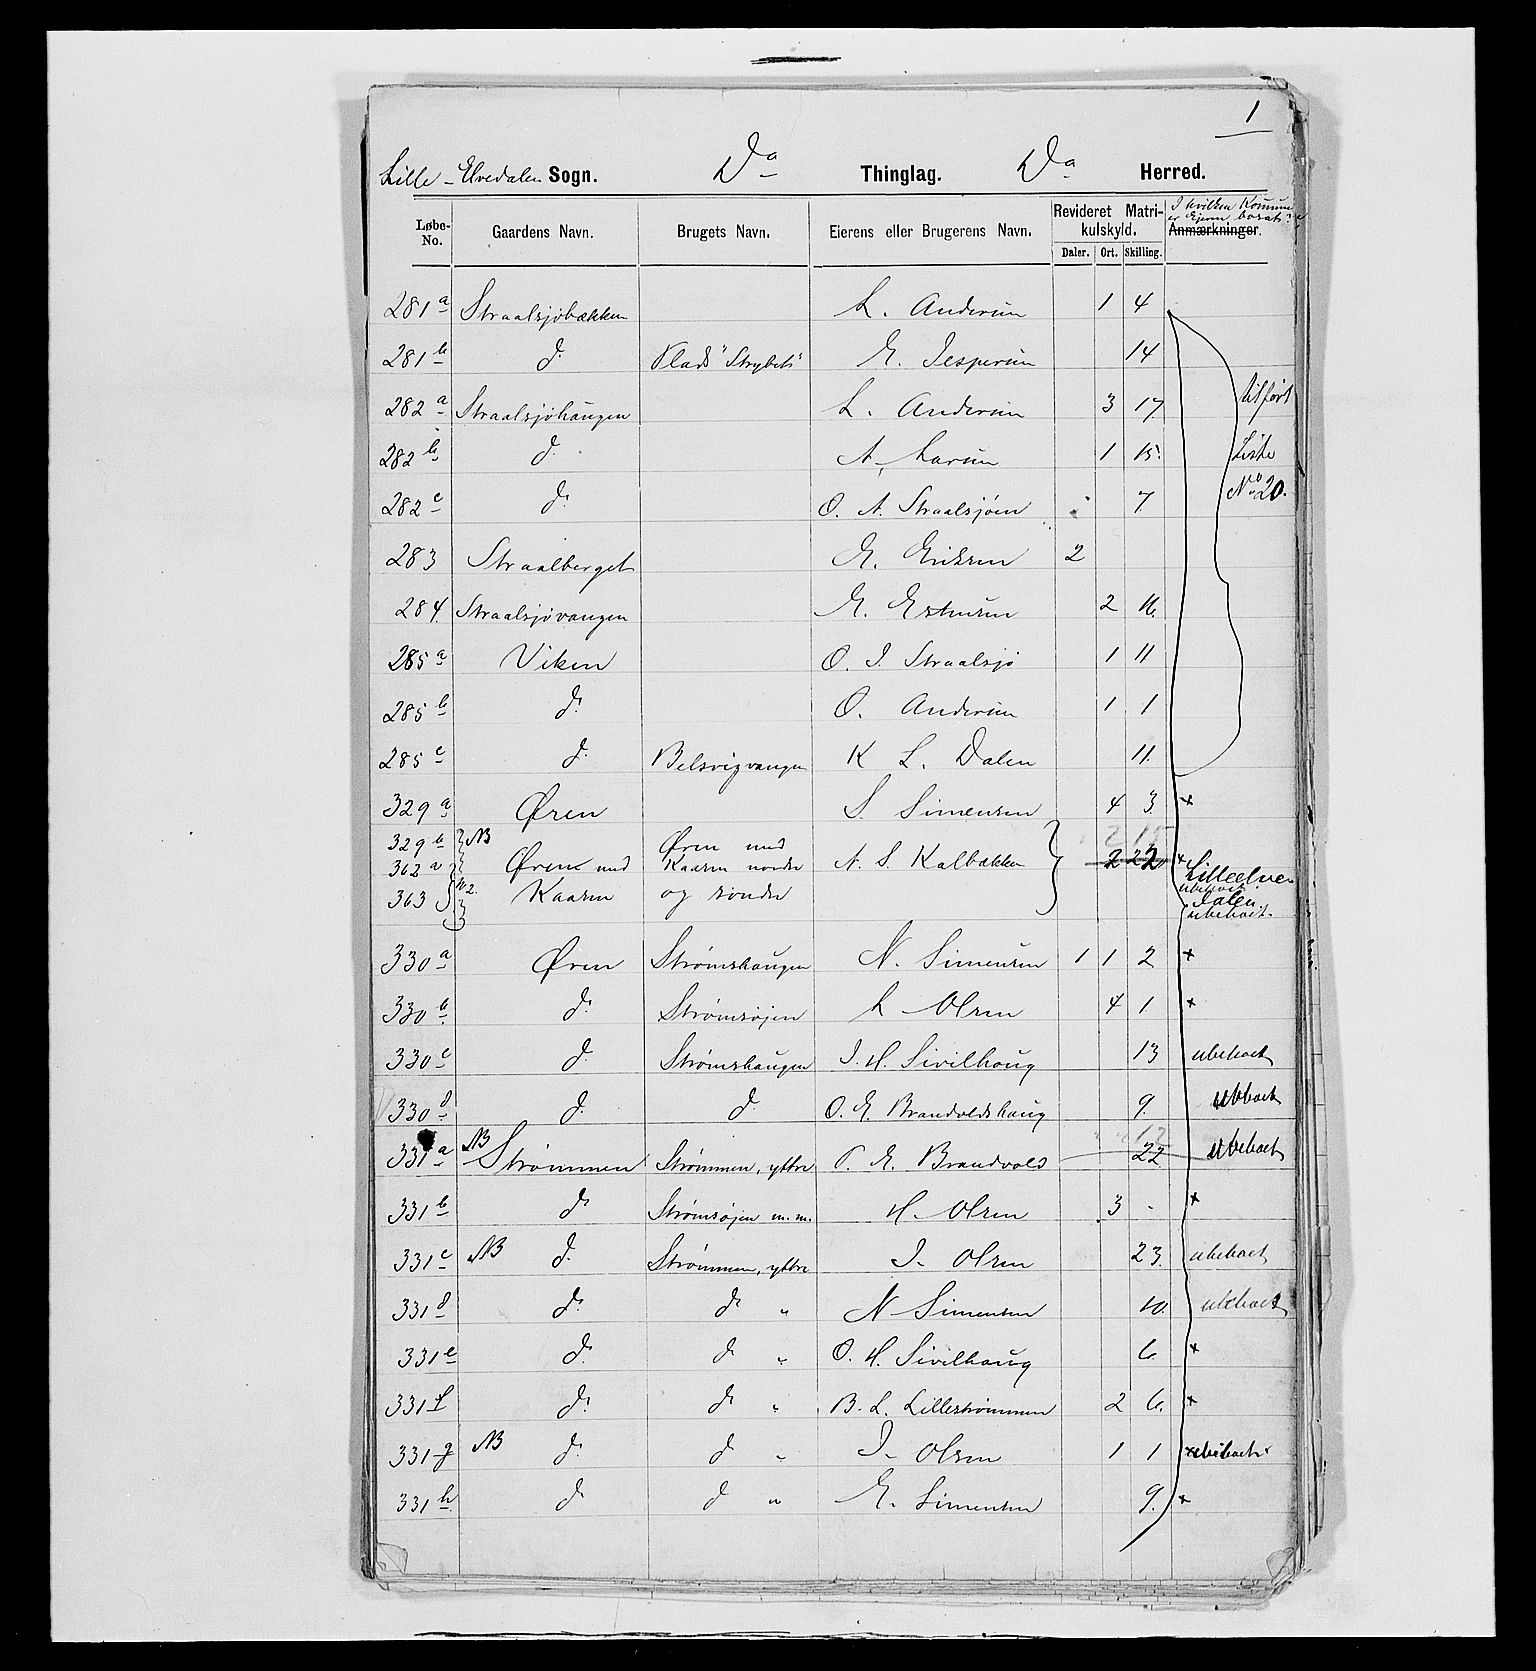 1
Lille-Elvedalen Sogn. Do Thinglag. Do Herred.
Løbe-No. Gaardens Navn. Brugets Navn. Eierens eller Brugerens Navn. Revideret Matrikulskyld. I hvilken Kommune er Ejeren bosat? Anmærkninger.
Daler. Ort. Skilling.
281 a Straalsjøbækken L. Andersen 1 4
281 b do Plads "Strybet" E. Jespersen 14
282 a Straalsjøhaugen L. Andersen 3 17 Utført
282 b do A. Larsen 1 15. Liste
282 c do O. A. Straalsjøen 7 No 20.
283 Straalberget E. Eriksen 2
284. Straalsjøvangen E. Estensen 2 16.
285 a Viken O. J. Straalsjø 1 11
285 b do O. Andersen 1 1
285 c do Belsvigvangen K L. Dalen 11.
329 a Øren S. Simensen 4 3. ×
329 b NB Øren med 2 15
362 a Øren med Kaasen nordre A. S. Kalbækken 2 22 × Lilleelve-
ubeboet
363 No 2. Kaasen og søndre dalen.
ubeboet.
330 a Øren Strømshaugen N. Simensen 1 1 2 ×
330 b. do Strømsøjen L Olsen 4 1 ×
330 c do Strømshaugen J. H. Sivilhaug 13 ubeboet
330 d do do O. E. Brandvoldshaug 9. ubeboet
331 a NB Strømmen Strømmen, yttre P. E. Brandvold 22 ubeboet
331 b do Strømsøjen m. m. H. Olsen 3 - ×
331 c NB do Strømmen, yttre J. Olsen 23. ubeboet
331 d do do " N Simensen 10. ubeboet
331 e do do " O. H. Sivilhaug 6. ×
331 f do do " B. L. Lillestrømmen 2 6. ×
331 g NB do do " J. Olsen 1 1 × ubeboet
331 h. do do " E. Simensen 9. ×